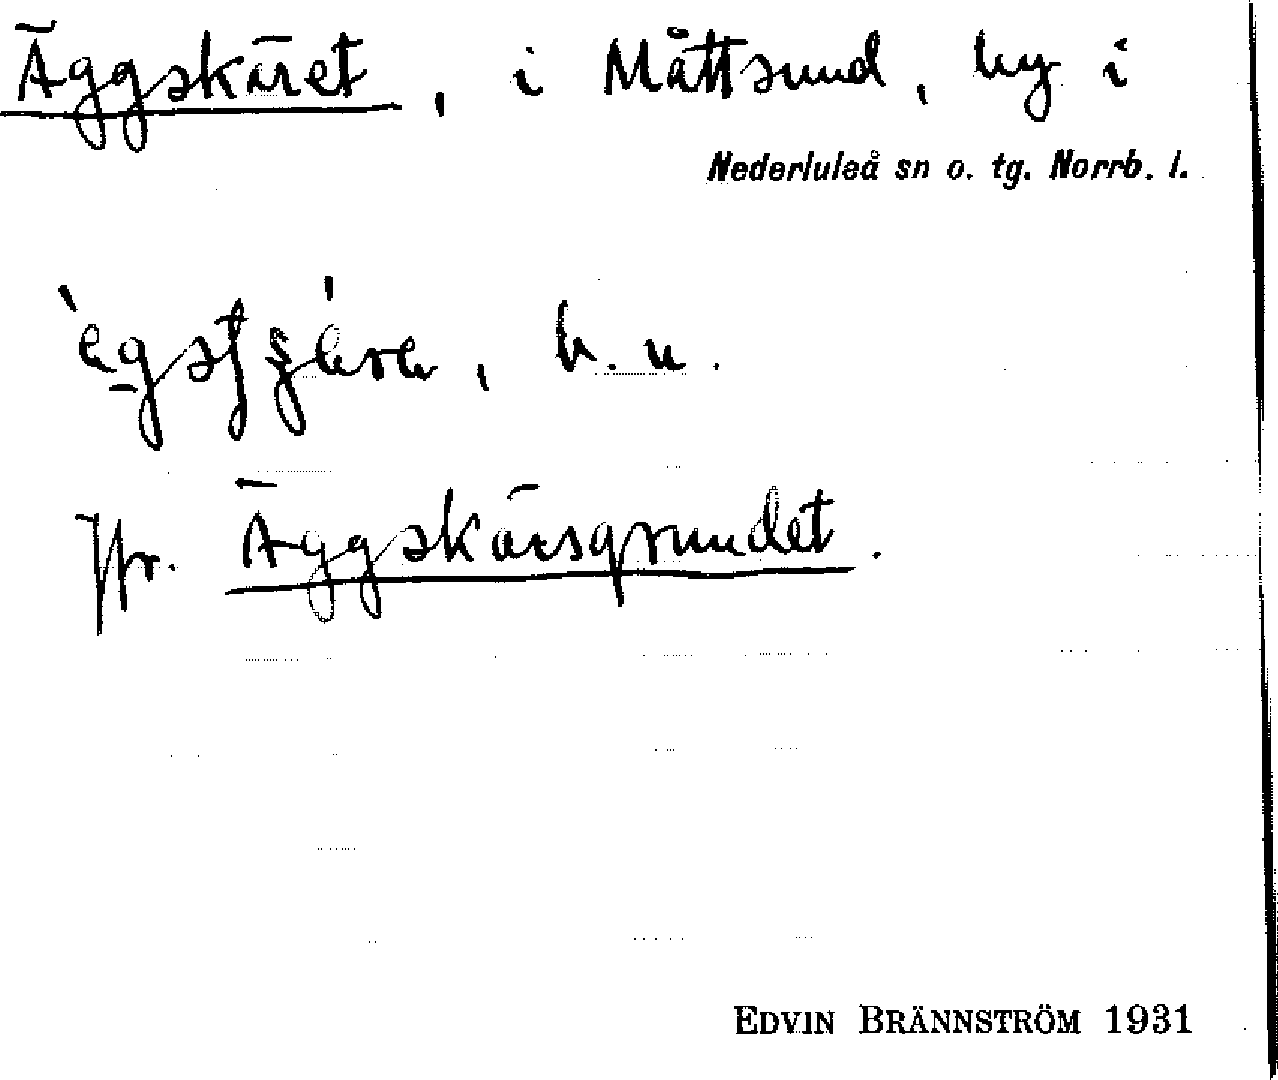 Äggskäret, i Måttsund, by i
Nederluleå sn o. tg. Norrb. l.
b. u.
Jfr. Äggskärsgrundet.
EDVIN BRÄNNSTRÖM 1931